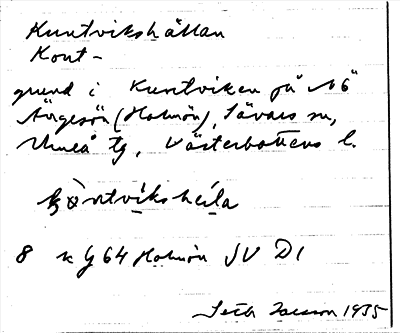 Kuntvikshällan
Kont-
grund i Kuntviken på NÖ
Ängesön (Holmön), Sävars sn,
Umeå tg, Västerbottens l.
8 x g 64 Holmön SV D1
Seth 1935